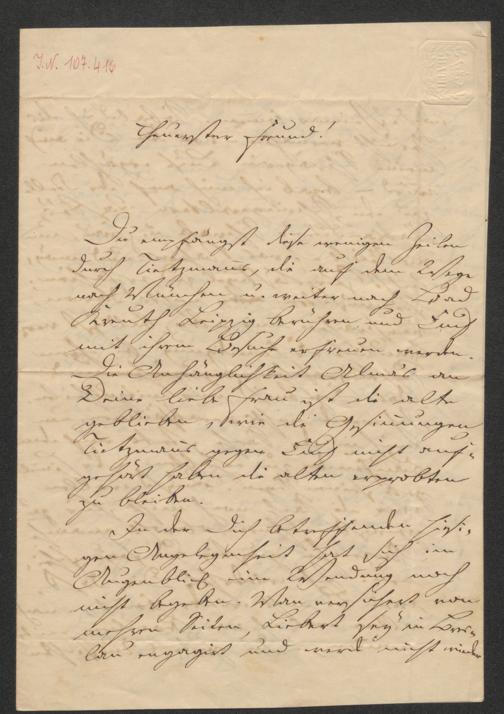 I.N. 107.413
Theuerster Freund!
Du empfängst diese wenigen Zeilen
durch Tietzmanns, die auf dem Wege
nach München u. weiter nach Bad
Kreuth Leipzig berühren und Euch
mit ihrem Besuche erfreuen werden.
Die Anhänglichkeit Alma's an
Deine liebe Frau ist die alte
geblieben, wie die Gesinnungen
Tietzmanns gegen Euch nicht auf-
gehört haben die alten erprobten
zu bleiben.
In der Dich betreffenden hiesi-
gen Angelegenheit hat sich im
Augenblick eine Wendung noch
nicht begeben. Man versichert von
mehren Seiten, Liebert sey in Bres-
lau engagirt und werde nicht wieder